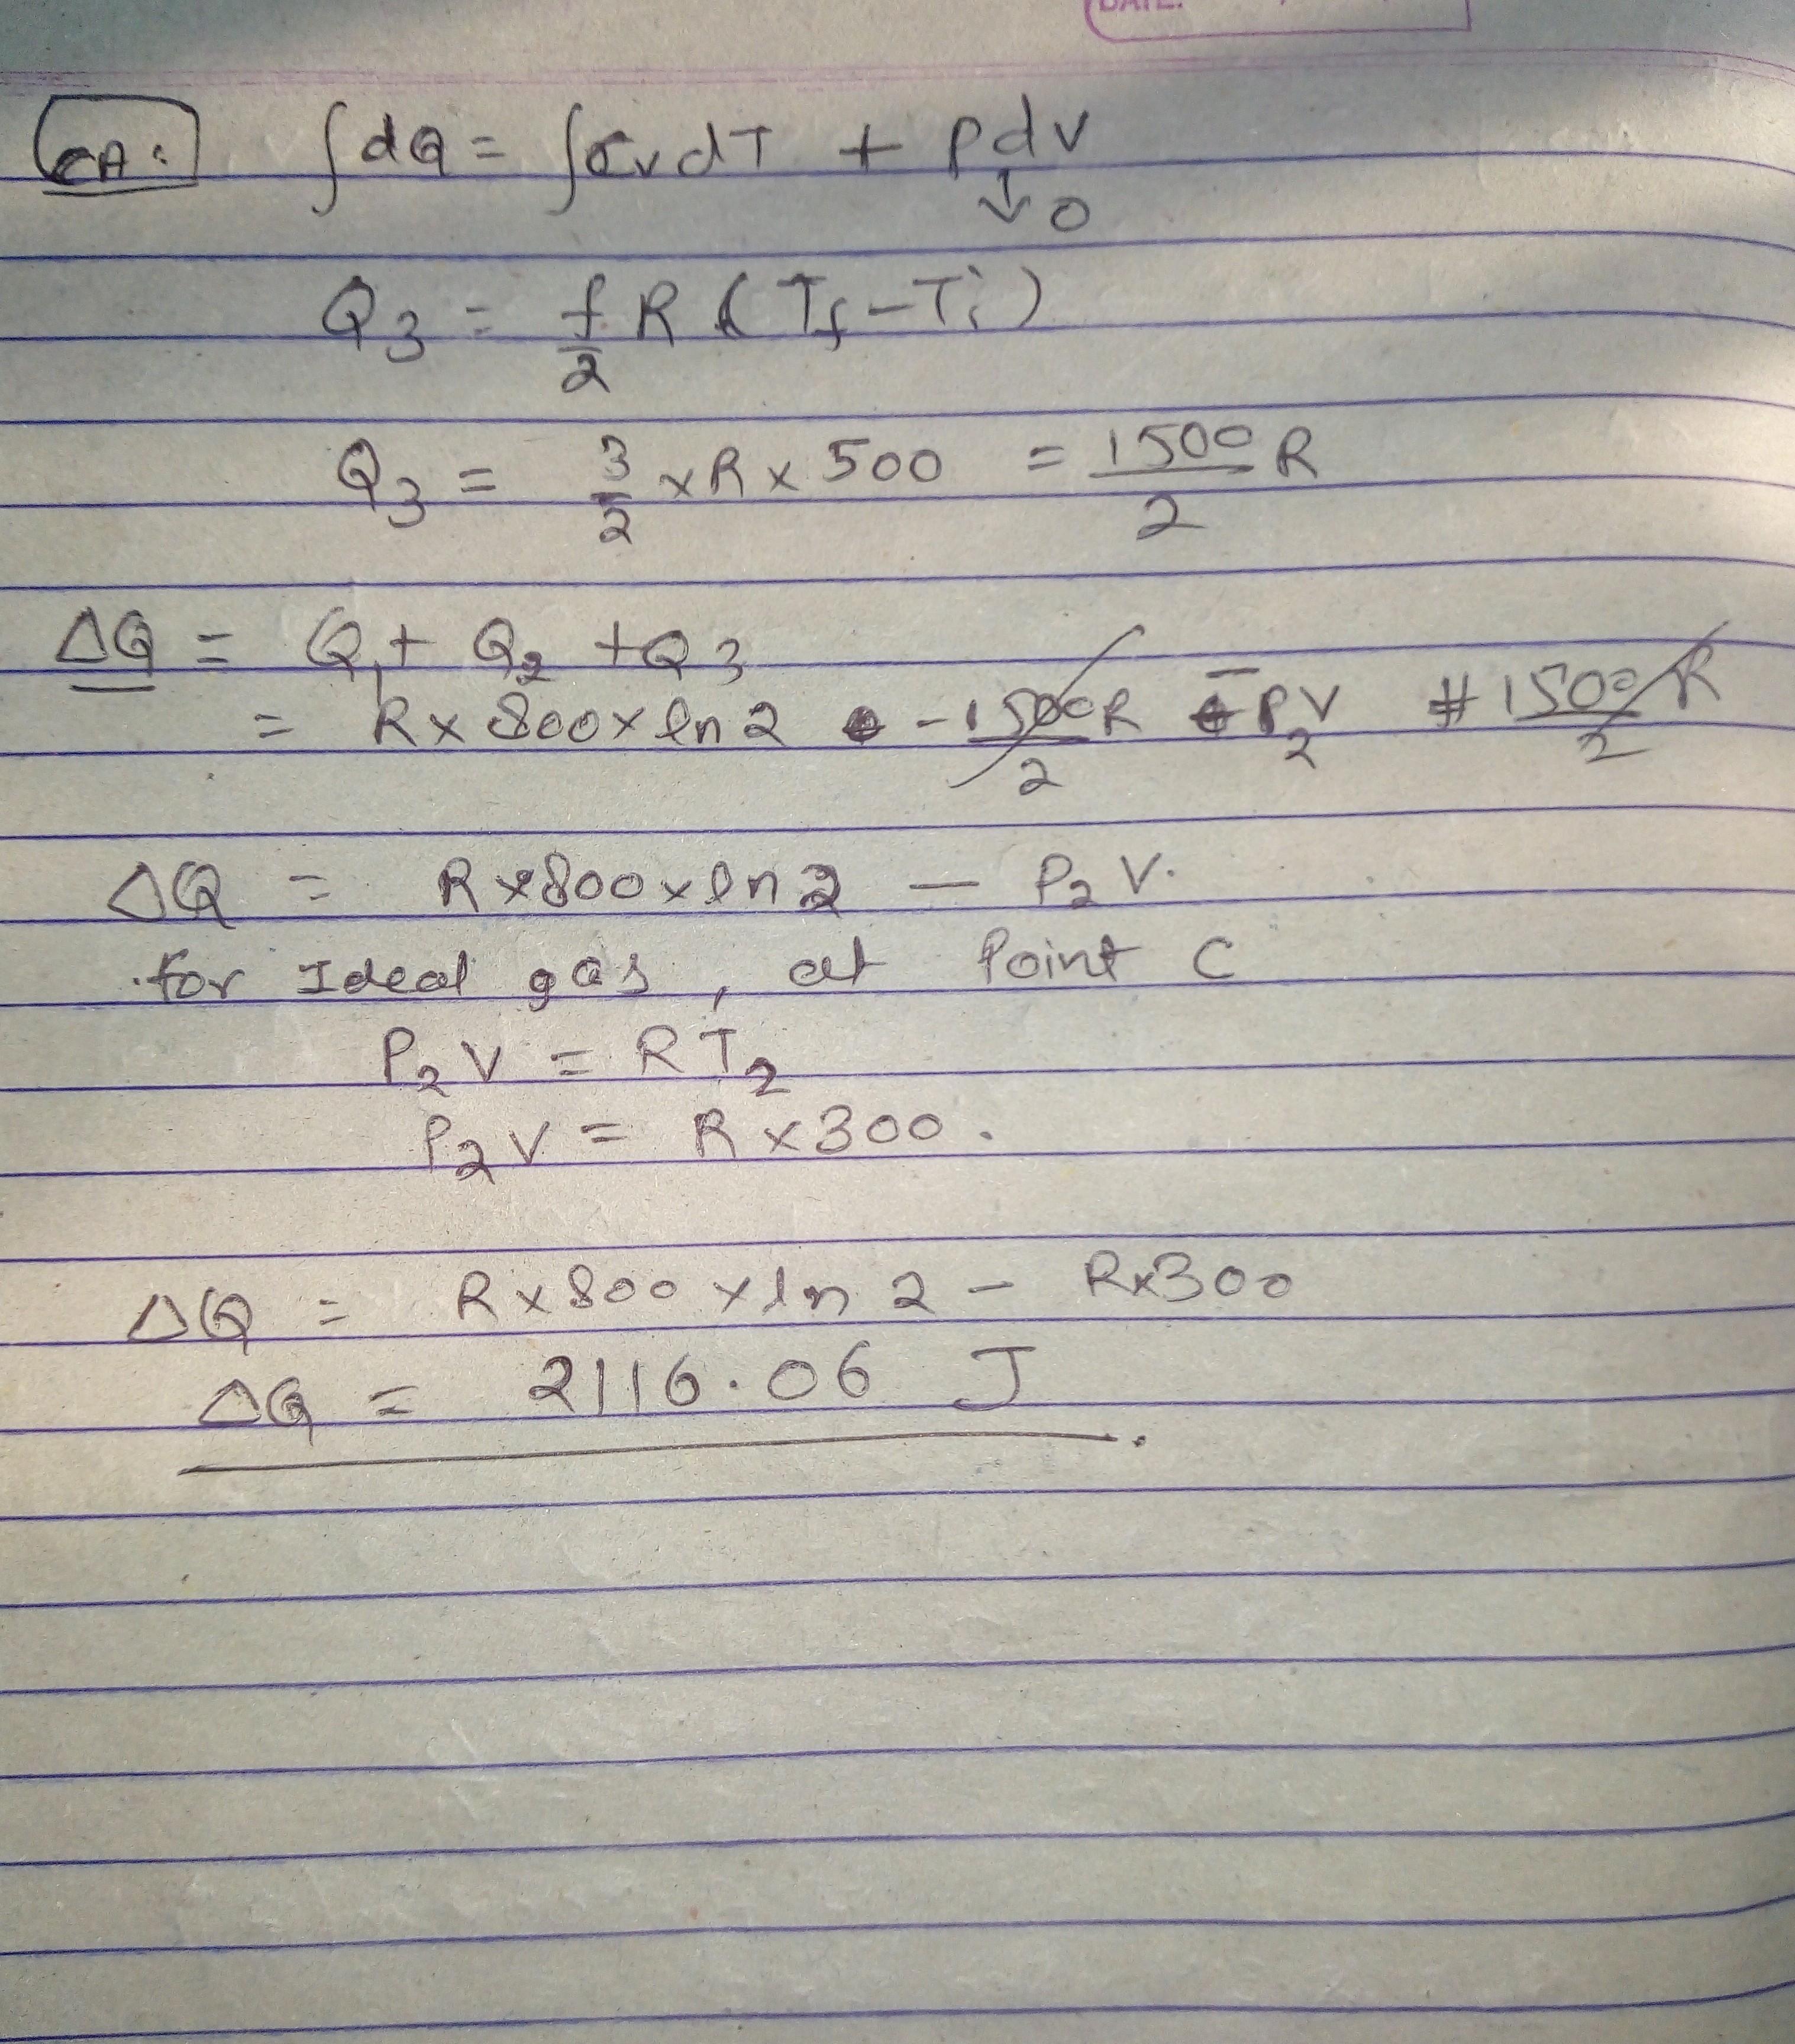 DATE:
CA: ∫dQ = ∫CvdT + PdV
↓0
Q3 = f/2 R (Tf - Ti)
Q3 = 3/2 x R x 500 = 1500/2 R
ΔQ = Q1 + Q2 + Q3
= R x 800 x ln 2 - 1500/2 R - P2V + 1500/2 R
ΔQ = R x 800 x ln 2 - P2 V.
for Ideal gas, at Point C
P2 V = R T2
P2 V = R x 300.
ΔQ = R x 800 x ln 2 - R x 300
ΔQ = 2116.06 J.